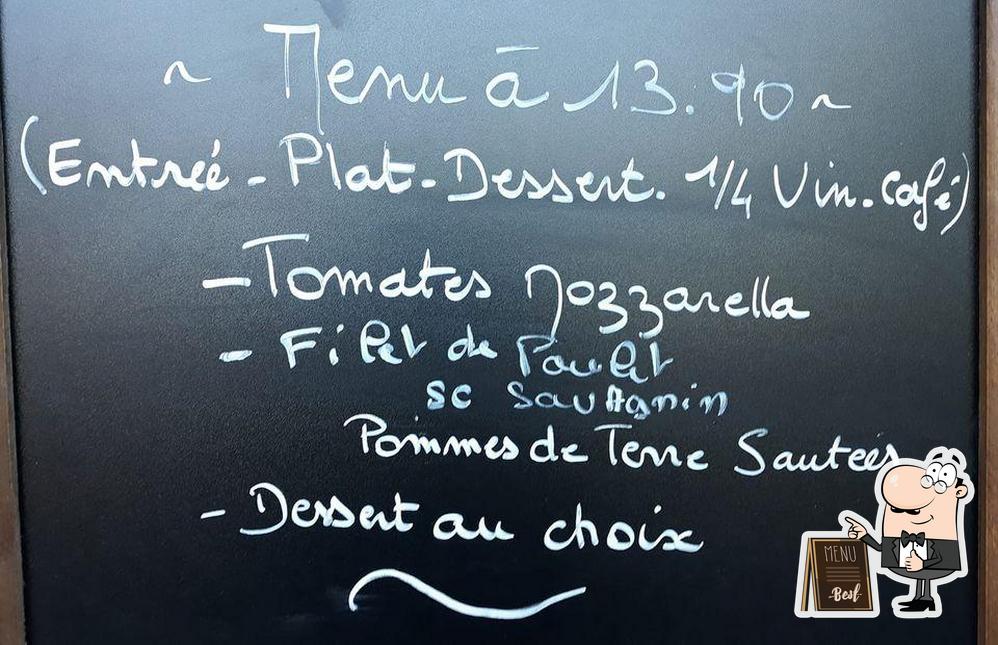 ~ Menu à 13.90 ~
(Entrée - Plat - Dessert. 1/4 Vin. Café)
- Tomates Mozzarella
- Filet de Poulet
sc Savagnin
Pommes de Terre Sautées
- Dessert au choix
MENU
Best